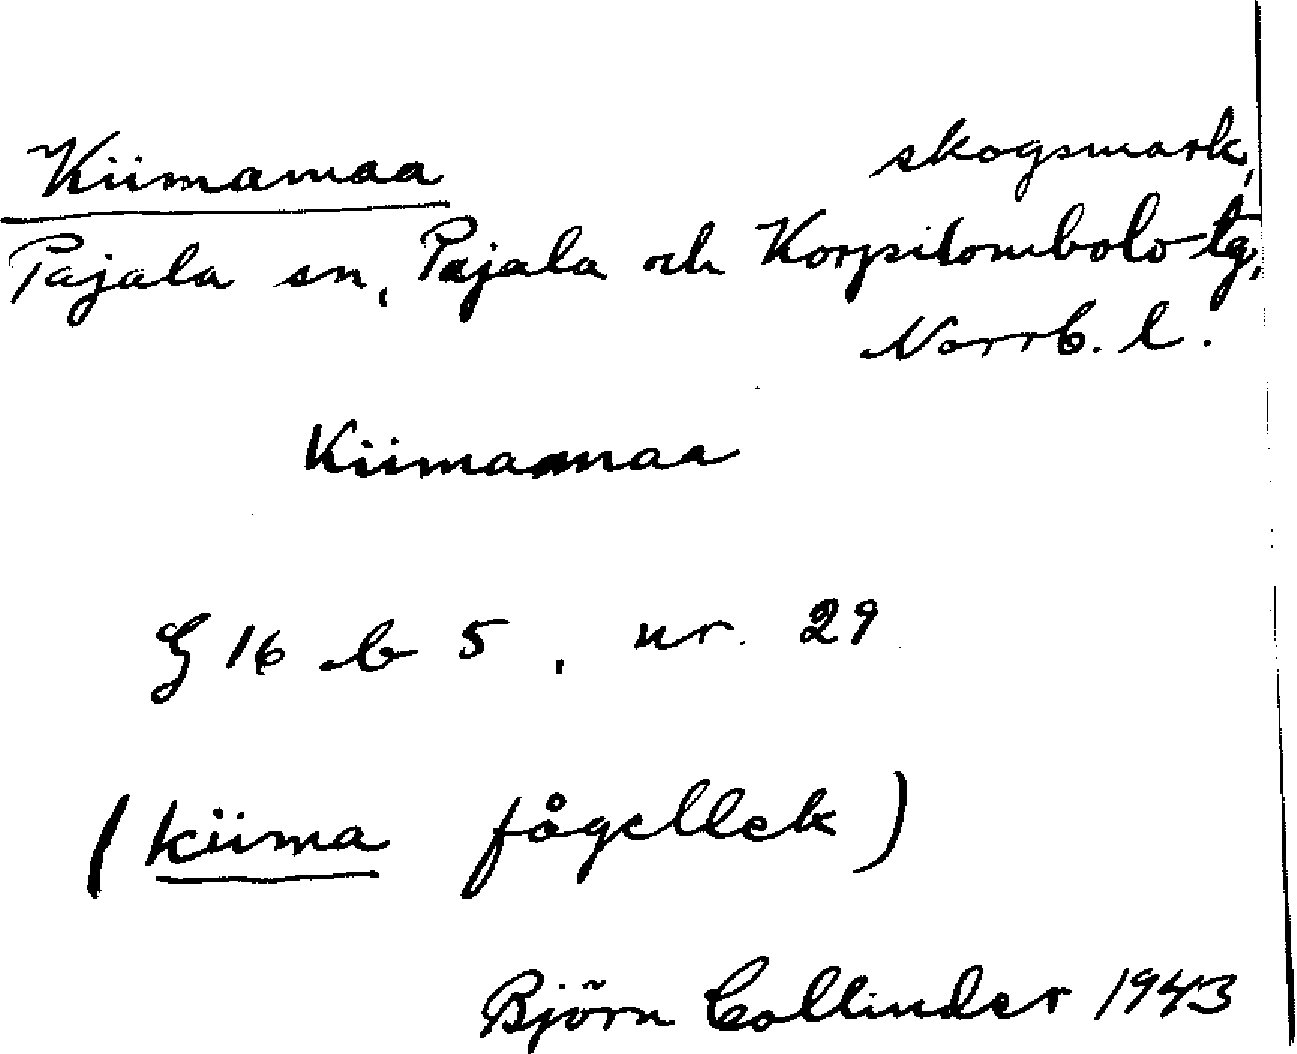 Kiimamaa skogsmark,
Pajala sn, Pajala och Korpilombolo tg,
Norrb. l.
Kiimamaa
G 16 b 5, nr. 29
(kiima fågellek)
Björn Collinder 1943